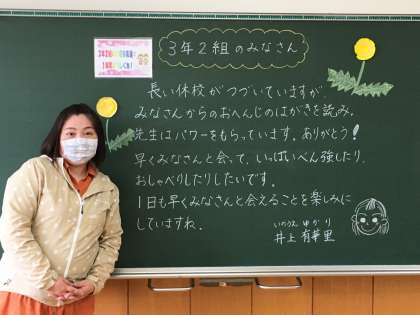 3年2組のみなさん
長い休校がつづいていますが
みなさんからのおへんじのはがきを読み、
先生はパワーをもらっています。ありがとう！
早くみなさんと会って、いっぱいべん強したり、
おしゃべりしたりしたいです。
1日も早くみなさんと会えることを楽しみに
していますね。
いのうえ ゆかり
井上 有華里